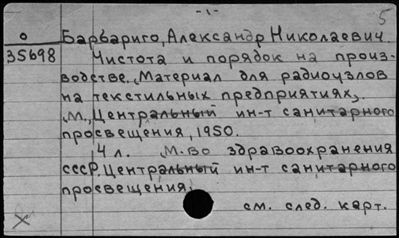 -1-
5
о
35698
Барбариго, Александр Николаевич.
Чистота и порядок на произ-
водстве. /Материал для радиоузлов
на текстильных предприятиях/.
М., Центральный ин-т санитарного
просвещения, 1950.
4 л. М-во здравоохранения
СССР. Центральный ин-т санитарного
просвещения.
см. след. карт.